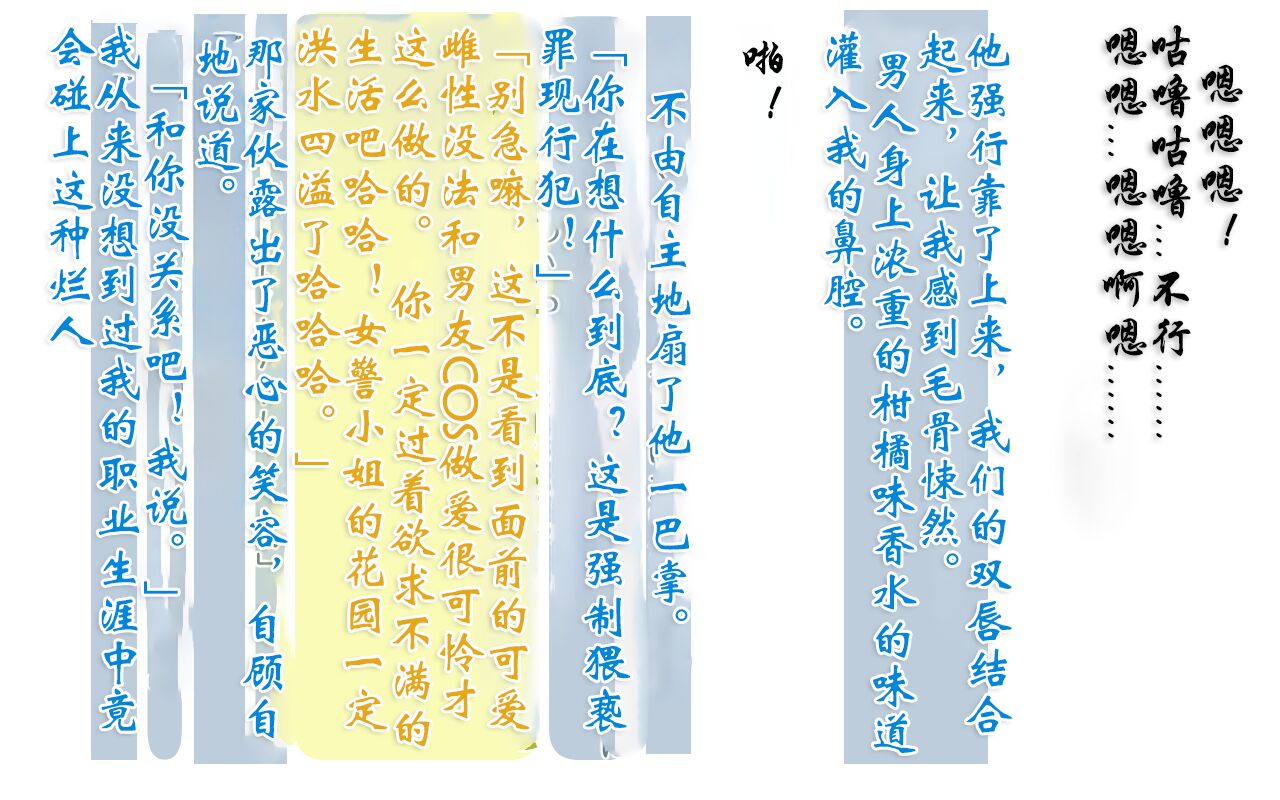 嗯嗯嗯！
咕噜咕噜…不行……
嗯嗯…嗯嗯啊嗯……
他强行靠了上来，我们的双唇结合
起来，让我感到毛骨悚然。
男人身上浓重的柑橘味香水的味道
灌入我的鼻腔。
啪！
不由自主地扇了他一巴掌。
「你在想什么到底？这是强制猥亵
罪现行犯！」
「别急嘛，这不是看到面前的可爱
雌性没法和男友COS做爱很可怜才
这么做的。你一定过着欲求不满的
生活吧哈哈！女警小姐的花园一定
洪水四溢了哈哈哈。」
那家伙露出了恶心的笑容，自顾自
地说道。
「和你没关系吧！我说。」
我从来没想到过我的职业生涯中竟
会碰上这种烂人